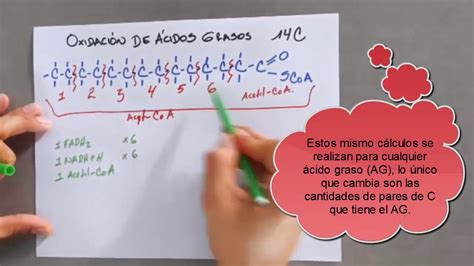 OXIDACIÓN DE ÁCIDOS GRASOS 14C
-C-C-C-C-C-C-C-C-C-C-C-C-C-C=O
SCoA
1 2 3 4 5 6 Acetil-CoA.
Acyl-CoA
1 FADH2 x6
1 NADH+H x6
1 Acetil-CoA
Estos mismo cálculos se
realizan para cualquier
ácido graso (AG), lo único
que cambia son las
cantidades de pares de C
que tiene el AG.